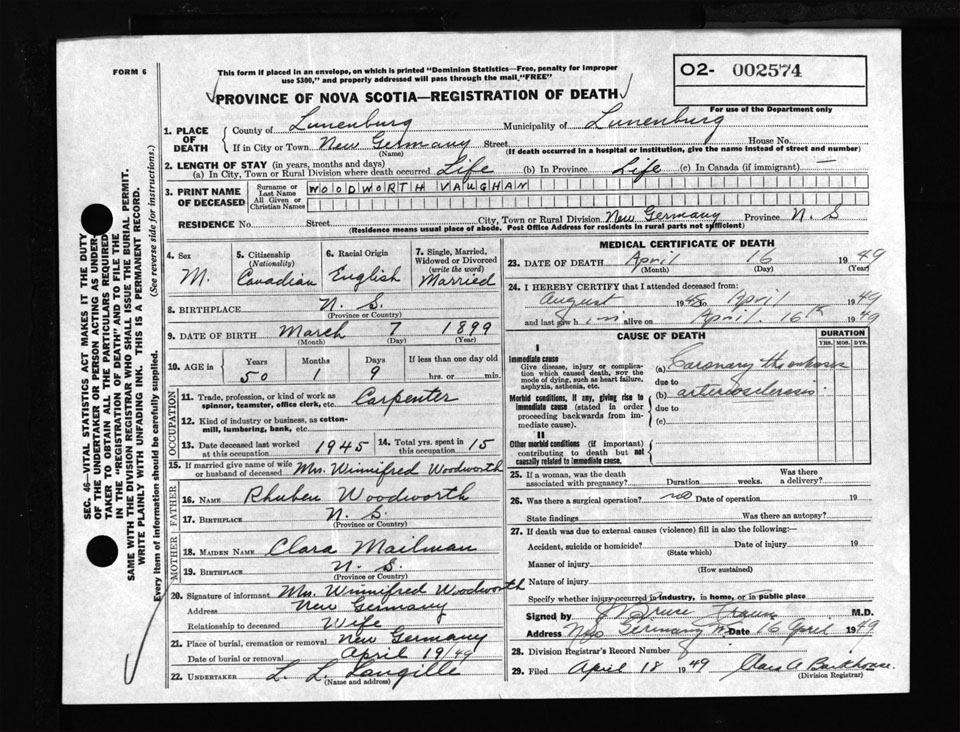 FORM 6
This form if placed in an envelope, on which is printed "Dominion Statistics—Free, penalty for improper
use $300," and properly addressed will pass through the mail "FREE"
O2- 002574
For use of the Department only
PROVINCE OF NOVA SCOTIA—REGISTRATION OF DEATH
1. PLACE OF DEATH
County of Lunenburg Municipality of Lunenburg
If in City or Town New Germany Street House No.
(Name) (If death occurred in a hospital or institution, give the name instead of street and number)
2. LENGTH OF STAY (in years, months and days)
(a) In City, Town or Rural Division where death occurred Life (b) In Province Life (c) In Canada (if immigrant) —
3. PRINT NAME OF DECEASED
Surname or Last Name WOODWORTH VAUGHAN
All Given or Christian Names
RESIDENCE No. Street City, Town or Rural Division New Germany Province N. S
(Residence means usual place of abode. Post Office Address for residents in rural parts not sufficient)
4. Sex M.
5. Citizenship (Nationality) Canadian
6. Racial Origin English
7. Single, Married, Widowed or Divorced (write the word) Married
8. BIRTHPLACE N. S.
(Province or Country)
9. DATE OF BIRTH March 7 1899
(Month) (Day) (Year)
10. AGE in Years Months Days If less than one day old
50 1 9 hrs. or min.
OCCUPATION
11. Trade, profession, or kind of work as spinner, teamster, office clerk, etc. Carpenter
12. Kind of industry or business, as cotton-mill, lumbering, bank, etc.
13. Date deceased last worked at this occupation 1945 14. Total yrs. spent in this occupation 15
15. If married give name of wife or husband of deceased Mrs. Winnifred Woodworth
FATHER
16. NAME Rhuben Woodworth
17. BIRTHPLACE N. S.
(Province or Country)
MOTHER
18. MAIDEN NAME Clara Mailman
19. BIRTHPLACE N. S.
(Province or Country)
20. Signature of informant Mrs. Winnifred Woodworth
Address New Germany
Relationship to deceased Wife
21. Place of burial, cremation or removal New Germany
Date of burial or removal April 19/49
22. UNDERTAKER L. L. Langille
(Name and address)
MEDICAL CERTIFICATE OF DEATH
23. DATE OF DEATH April 16 1949
(Month) (Day) (Year)
24. I HEREBY CERTIFY that I attended deceased from:
August 1948 to April 1949
and last saw him alive on April 16th 1949
CAUSE OF DEATH
DURATION
YRS. MOS. DYS.
I
Immediate cause
Give disease, injury or complication which caused death, not the mode of dying, such as heart failure, asphyxia, asthenia, etc.
(a) Coronary thrombosis
due to
Morbid conditions, if any, giving rise to immediate cause (stated in order proceeding backwards from immediate cause).
(b) arteriosclerosis
due to
(c)
II
Other morbid conditions (if important) contributing to death but not causally related to immediate cause.
25. If a woman, was the death associated with pregnancy? Duration weeks. Was there a delivery?
26. Was there a surgical operation? no Date of operation 19
State findings Was there an autopsy?
27. If death was due to external causes (violence) fill in also the following:—
Accident, suicide or homicide? Date of injury 19
(State which)
Manner of injury
(How sustained)
Nature of injury
Specify whether injury occurred in industry, in home, or in public place
Signed by J Bruce M.D.
Address New Germany Date 16 April 1949
28. Division Registrar's Record Number 8
29. Filed April 18 1949 Clara A Barkhouse.
(Division Registrar)
SEC. 46—VITAL STATISTICS ACT MAKES IT THE DUTY
OF THE UNDERTAKER OR PERSON ACTING AS UNDER-
TAKER TO OBTAIN ALL THE PARTICULARS REQUIRED
IN THE "REGISTRATION OF DEATH" AND TO FILE THE
SAME WITH THE DIVISION REGISTRAR WHO SHALL ISSUE THE BURIAL PERMIT.
WRITE PLAINLY WITH UNFADING INK. THIS IS A PERMANENT RECORD.
Every item of information should be carefully supplied. (See reverse side for instructions.)